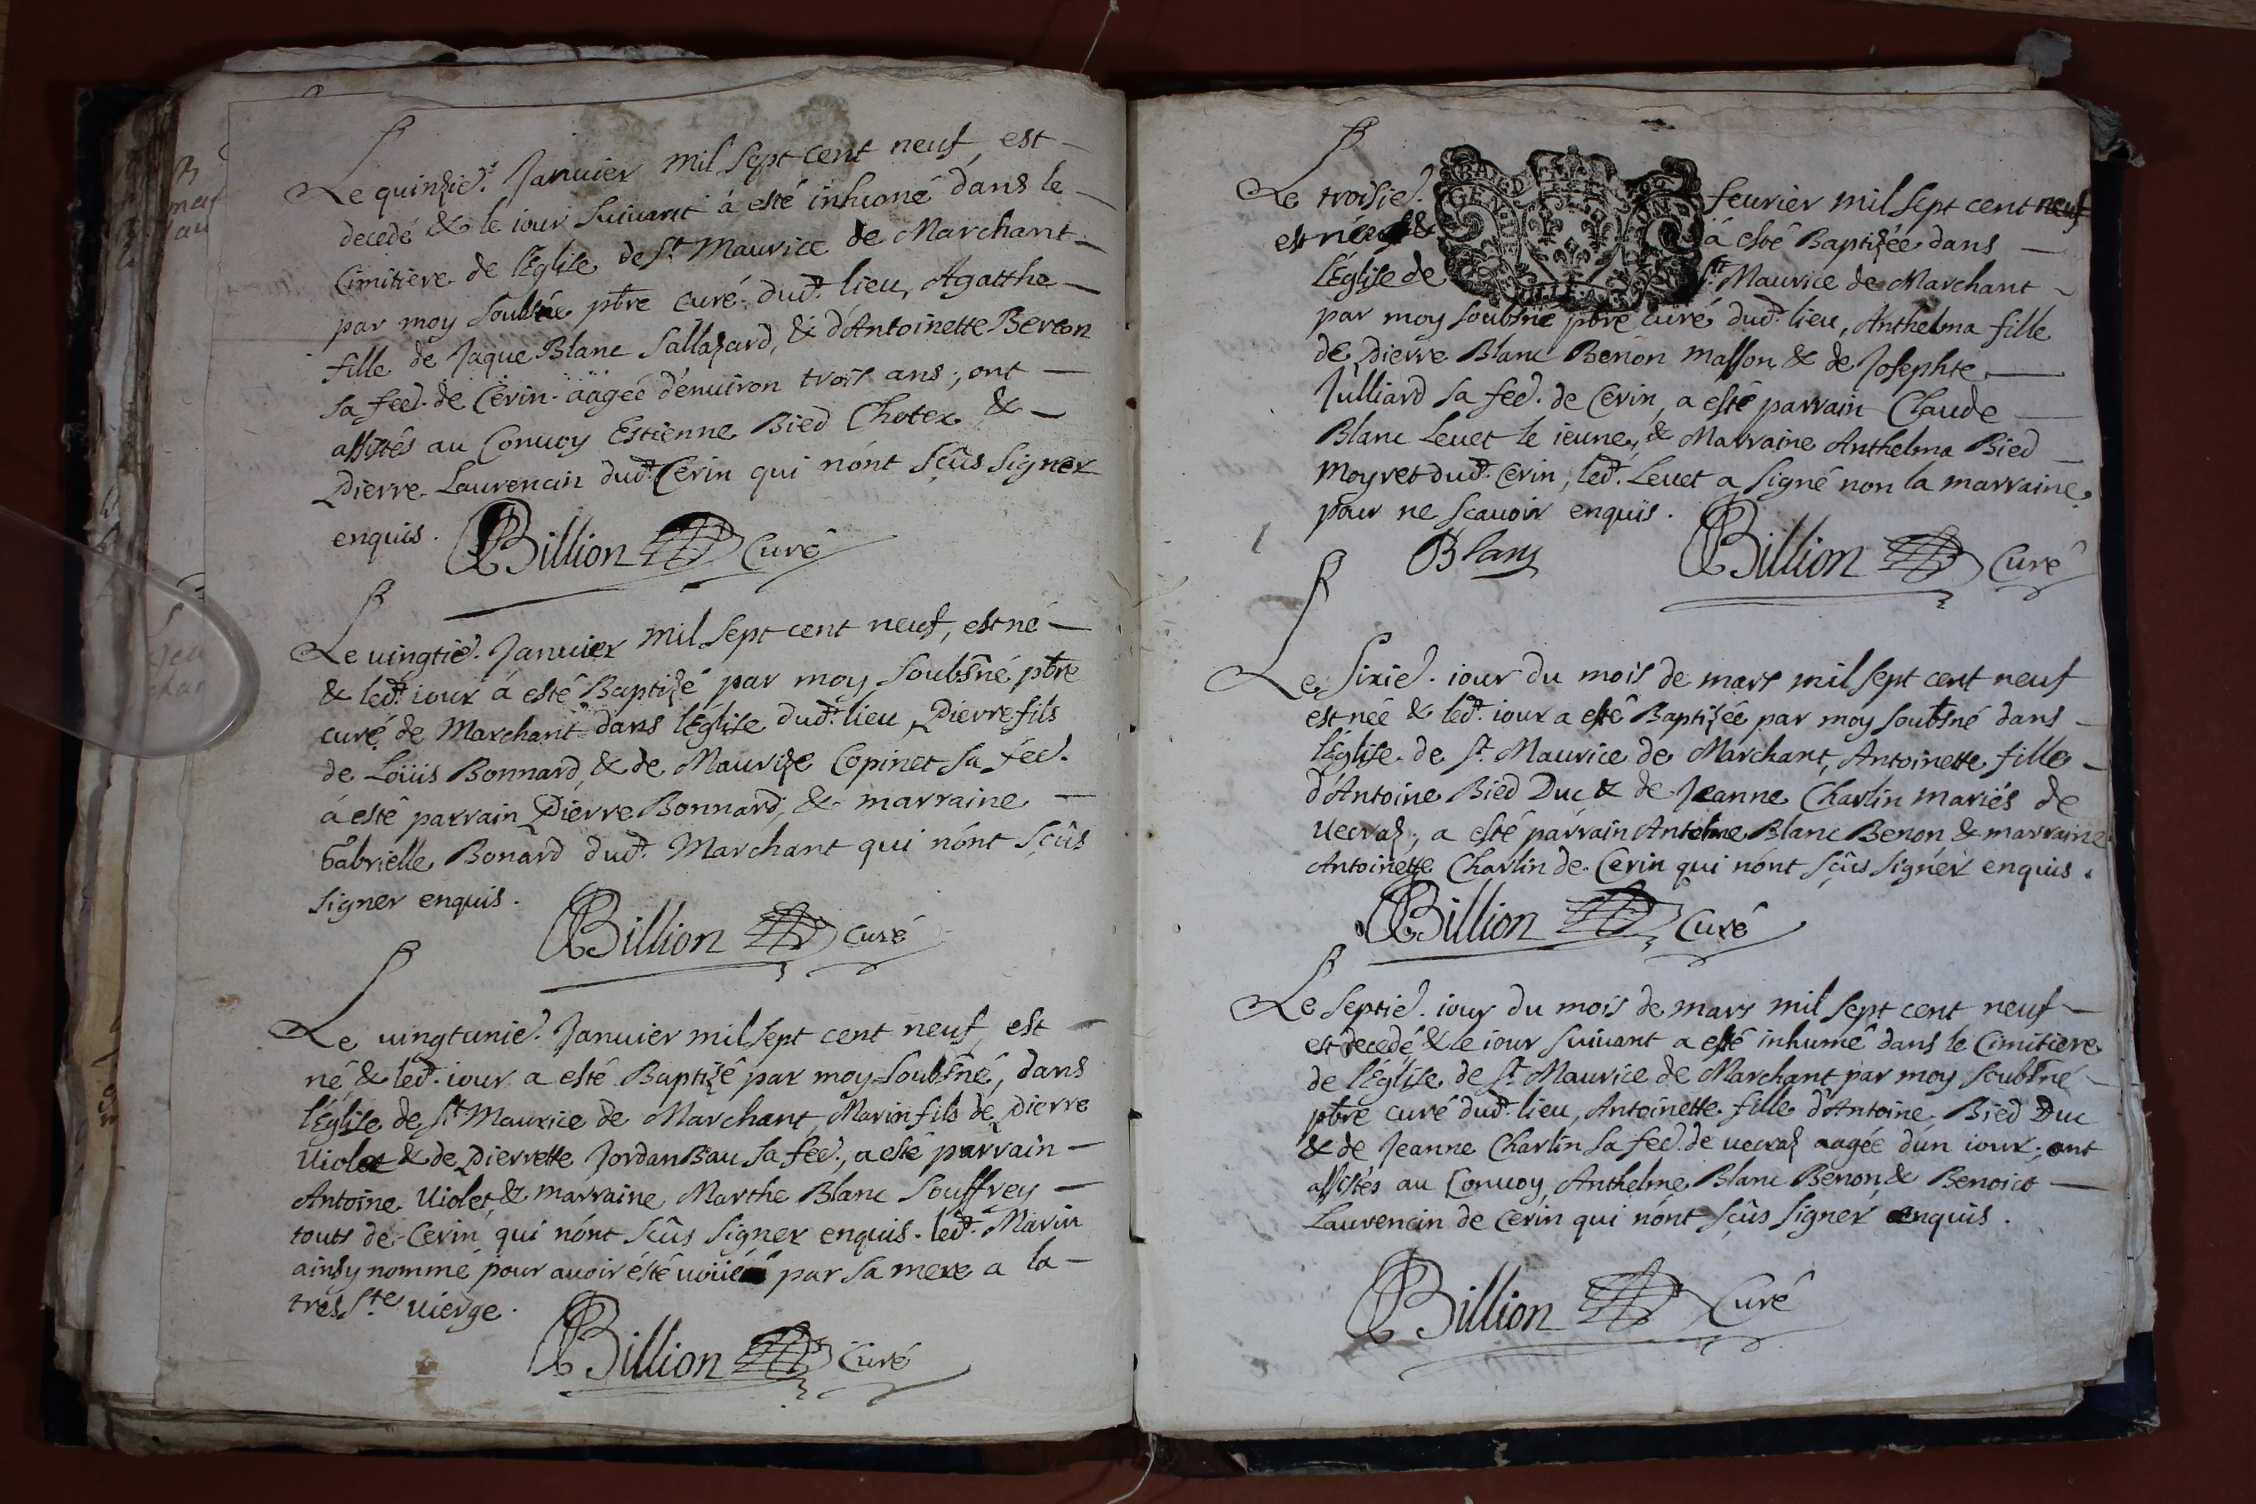 Le quinzie.ᵉ Januier mil sept cent neuf, est
decedé & le iour suiuant á esté inhumé dans le
Cimitiere de lEglise de Sᵗ Maurice de Marchant
par moy soubsné pbre curé dudᵗ lieu, Agatthe
fille de Jaque Blanc Sallazard, & d'Antoinette Beron
sa feē. de Cerin aagée d'enuiron trois ans; ont
assistés au Conuoy Estienne Bied Chotex &
Pierre Laurencin dudᵗ Cerin qui nónt sçûs signer
enquis.
Billion Curé
Le uingtiē. Januier mil sept cent neuf, est né
& ledᵗ iour á esté Baptizé par moy soubsné pbre
curé de Marchant dans lÉglise dudᵗ lieu Pierre fils
de Loüis Bonnard, & de Maurize Copinet sa feē.
á esté parrain Pierre Bonnard, & marraine
Gabrielle Bonard dudᵗ Marchant qui nónt sçûs
signer enquis.
Billion Curé
Le uingtuniē. Januier mil sept cent neuf, est
né & ledᵗ iour a esté Baptizé par moy soubsné, dans
lEglise de Sᵗ Maurice de Marchant, Marin fils de Pierre
Uiolet & de Pierrette Jordan Bau sa feē., a esté parrain
Antoine Uiolet, & marraine Marthe Blanc Souffrey
touts de Cerin qui nónt sçûs signer enquis. ledᵗ Marin
ainsy nommé pour auoir ésté uoüé par sa mere a la
tres Sᵗᵉ uierge.
Billion Curé
Le troisiē. feurier mil sept cent neuf
est née & á esté Baptizée dans
lEglise de Sᵗ Maurice de Marchant
par moy soubsné pbre curé dudᵗ lieu, Anthelma fille
de Pierre Blanc Benon masson & de Josephte
Julliard sa feē. de Cerin, a esté parrain Claude
Blanc Leuet le ieune, & Marraine Anthelma Bied
Moyret dudᵗ Cerin, ledᵗ Leuet a signé non la marraine
pour ne scauoir enquis.
Blanc Billion Curé
Le sixiē. iour du mois de mars mil sept cent neuf
est née & ledᵗ iour a esté Baptizée par moy soubsné dans
lÉglise de Sᵗ Maurice de Marchant, Antoinette fille
d'Antoine Bied Duc & de Jeanne Charlin mariés de
uecraz; a esté parrain Antelme Blanc Benon & marraine
Antoinette Charlin de Cerin qui nónt sçûs signer enquis.
Billion Curé
Le Septiē. iour du mois de mars mil sept cent neuf
est decedé & le iour suiuant a esté inhumé dans le Cimitiere
de lEglise de Sᵗ Maurice de Marchant par moy soubsné
pbre curé dudᵗ lieu, Antoinette fille d'Antoine Bied Duc
& de Jeanne Charlin sa feē. de uecraz aagée d'un iour; ont
assistés au Conuoy Anthelme Blanc Benon & Benoict
Laurencin de Cerin qui nónt sçûs signer enquis.
Billion Curé